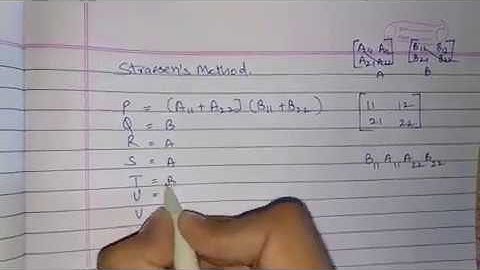 Strassen's Method.
P = (A11 + A22) (B11 + B22)
Q = B
R = A
S = A
T = B
U =
V
A11 A12
A21 A22
A
B11 B12
B21 B22
B
11 12
21 22
B11 A11 A22 B22